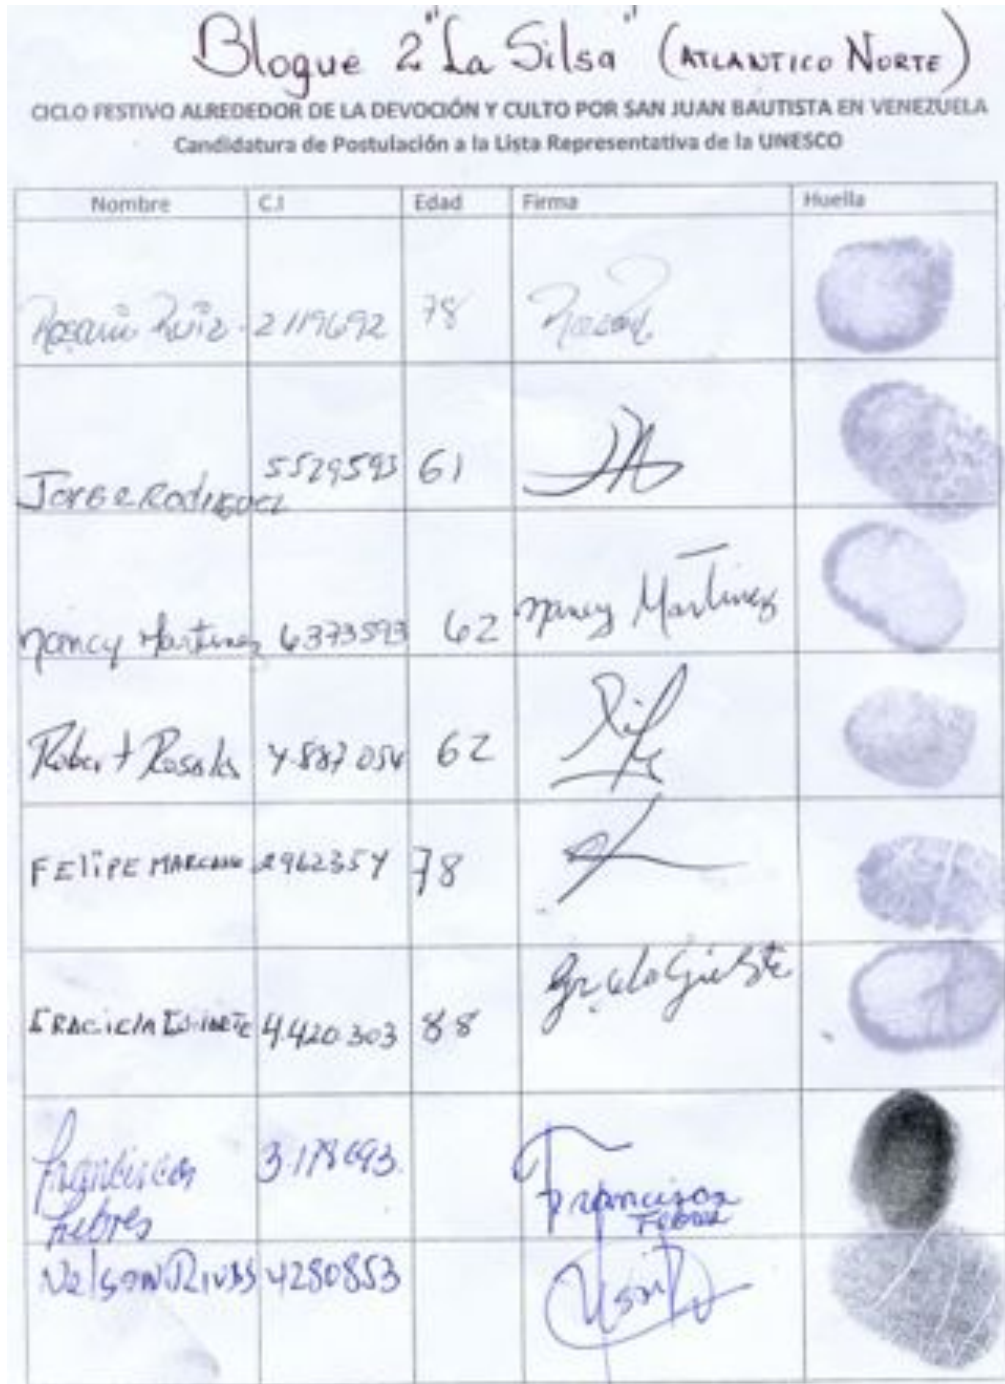 Bloque 2 "La Silsa" (ATLANTICO NORTE)
CICLO FESTIVO ALREDEDOR DE LA DEVOCIÓN Y CULTO POR SAN JUAN BAUTISTA EN VENEZUELA
Candidatura de Postulación a la Lista Representativa de la UNESCO
Nombre C.I Edad Firma Huella
Ruiz 2119692 78
Jorge Rodriguez 5529593 61
Nancy Martinez 6373593 62 Nancy Martinez
Robert Rosales 4.887.054 62
FELIPE MARCANO 2962354 78
4.420.303 88
Francisca 3.178693. Francisca
Febres
Nelson Rivas 4280853